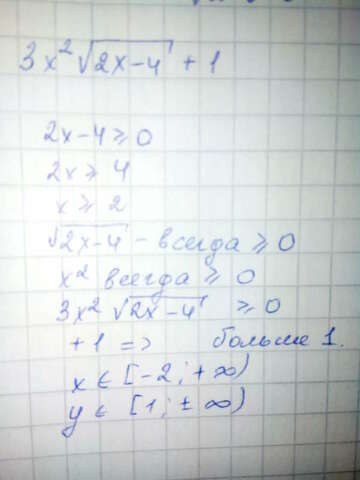 3x² √(2x-4) + 1
2x-4 ≥ 0
2x ≥ 4
x ≥ 2
√(2x-4) - всегда ≥ 0
x² всегда ≥ 0
3x² √(2x-4) ≥ 0
+1 => больше 1.
x ∈ [-2; +∞)
y ∈ [1; ±∞)